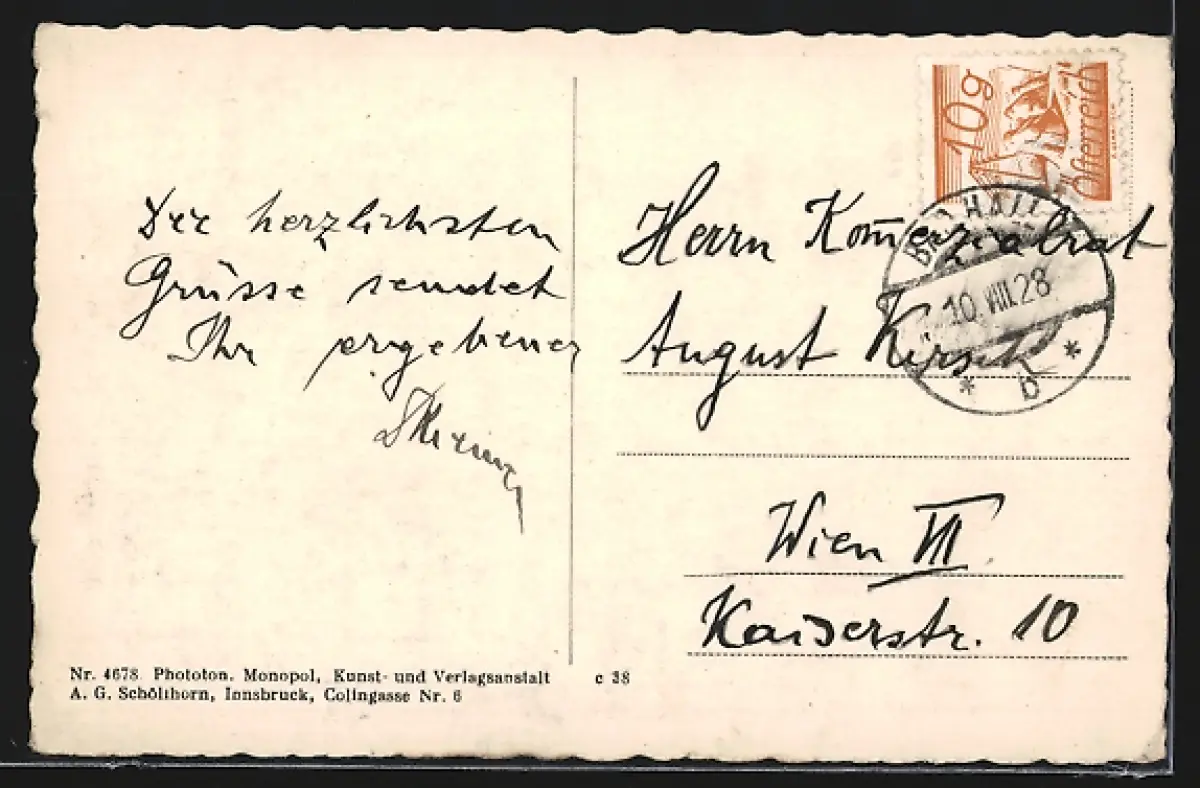 Die herzlichsten
Grüsse sendet
Ihr ergebener
Herrn Kom̄erzialrat
August Kirsch
Wien VII.
Kaiserstr. 10
10g
Österreich
BAD HALL
10.VIII.28
* b *
Nr. 4678 Phototon. Monopol, Kunst- und Verlagsanstalt
A. G. Schöllhorn, Innsbruck, Colingasse Nr. 6
c 38